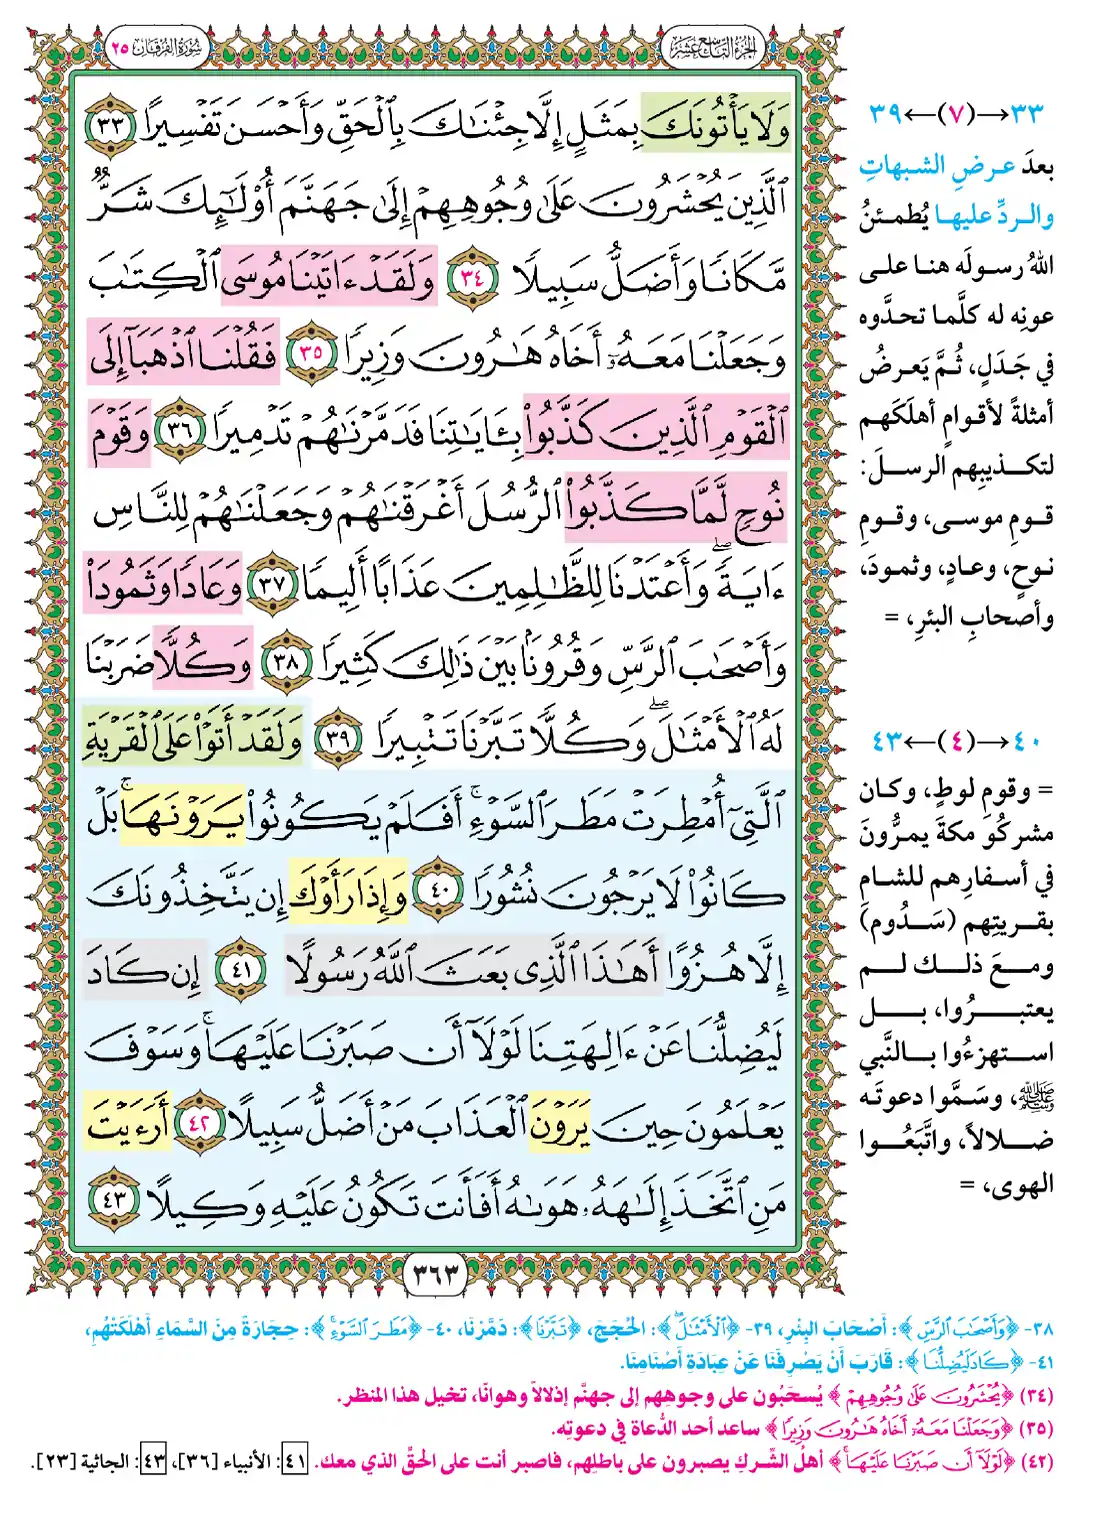 الجزء التاسع عشر
سورة الفرقان ٢٥
وَلَا يَأْتُونَكَ بِمَثَلٍ إِلَّا جِئْنَٰكَ بِٱلْحَقِّ وَأَحْسَنَ تَفْسِيرًا ٣٣
ٱلَّذِينَ يُحْشَرُونَ عَلَىٰ وُجُوهِهِمْ إِلَىٰ جَهَنَّمَ أُو۟لَٰٓئِكَ شَرٌّ
مَّكَانًا وَأَضَلُّ سَبِيلًا ٣٤ وَلَقَدْ ءَاتَيْنَا مُوسَى ٱلْكِتَٰبَ
وَجَعَلْنَا مَعَهُۥٓ أَخَاهُ هَٰرُونَ وَزِيرًا ٣٥ فَقُلْنَا ٱذْهَبَآ إِلَى
ٱلْقَوْمِ ٱلَّذِينَ كَذَّبُوا۟ بِـَٔايَٰتِنَا فَدَمَّرْنَٰهُمْ تَدْمِيرًا ٣٦ وَقَوْمَ
نُوحٍ لَّمَّا كَذَّبُوا۟ ٱلرُّسُلَ أَغْرَقْنَٰهُمْ وَجَعَلْنَٰهُمْ لِلنَّاسِ
ءَايَةً ۖ وَأَعْتَدْنَا لِلظَّٰلِمِينَ عَذَابًا أَلِيمًا ٣٧ وَعَادًا وَثَمُودَا۟
وَأَصْحَٰبَ ٱلرَّسِّ وَقُرُونًۢا بَيْنَ ذَٰلِكَ كَثِيرًا ٣٨ وَكُلًّا ضَرَبْنَا
لَهُ ٱلْأَمْثَٰلَ ۖ وَكُلًّا تَبَّرْنَا تَتْبِيرًا ٣٩ وَلَقَدْ أَتَوْا۟ عَلَى ٱلْقَرْيَةِ
ٱلَّتِىٓ أُمْطِرَتْ مَطَرَ ٱلسَّوْءِ ۚ أَفَلَمْ يَكُونُوا۟ يَرَوْنَهَا ۚ بَلْ
كَانُوا۟ لَا يَرْجُونَ نُشُورًا ٤٠ وَإِذَا رَأَوْكَ إِن يَتَّخِذُونَكَ
إِلَّا هُزُوًا أَهَٰذَا ٱلَّذِى بَعَثَ ٱللَّهُ رَسُولًا ٤١ إِن كَادَ
لَيُضِلُّنَا عَنْ ءَالِهَتِنَا لَوْلَآ أَن صَبَرْنَا عَلَيْهَا ۚ وَسَوْفَ
يَعْلَمُونَ حِينَ يَرَوْنَ ٱلْعَذَابَ مَنْ أَضَلُّ سَبِيلًا ٤٢ أَرَءَيْتَ
مَنِ ٱتَّخَذَ إِلَٰهَهُۥ هَوَىٰهُ أَفَأَنتَ تَكُونُ عَلَيْهِ وَكِيلًا ٤٣
٣٦٣
٣٣→(٧)←٣٩
بعدَ عرضِ الشبهاتِ
والردِّ عليها يُطمئنُ
اللهُ رسولَه هنا على
عونِه له كلَّما تحدَّوه
في جَدَلٍ، ثُمَّ يَعرضُ
أمثلةً لأقوامٍ أهلَكَهم
لتكذيبِهم الرسلَ:
قومِ موسى، وقومِ
نوحٍ، وعادٍ، وثمودَ،
وأصحابِ البئرِ، =
٤٠→(٤)←٤٣
= وقومِ لوطٍ، وكان
مشركُو مكةَ يمرُّونَ
في أسفارِهم للشامِ
بقريتِهم (سَدُوم)
ومعَ ذلك لم
يعتبرُوا، بل
استهزءُوا بالنَّبي
ﷺ، وسَمَّوا دعوتَه
ضلالاً، واتَّبَعُوا
الهوى، =
٣٨- ﴿وَأَصْحَٰبَ ٱلرَّسِّ﴾: أَصْحَابَ البِئْرِ، ٣٩- ﴿ٱلْأَمْثَٰلَ ۖ﴾: الحُجَجَ، ﴿تَبَّرْنَا﴾: دَمَّرْنَا، ٤٠- ﴿مَطَرَ ٱلسَّوْءِ ۚ﴾: حِجَارَةً مِنَ السَّمَاءِ أَهْلَكَتْهُم،
٤١- ﴿كَادَ لَيُضِلُّنَا﴾: قَارَبَ أَنْ يَصْرِفَنَا عَنْ عِبَادَةِ أَصْنَامِنَا.
(٣٤) ﴿يُحْشَرُونَ عَلَىٰ وُجُوهِهِمْ﴾ يُسحَبُون على وجوههم إلى جهنَّم إذلالاً وهوانًا، تخيل هذا المنظر.
(٣٥) ﴿وَجَعَلْنَا مَعَهُۥٓ أَخَاهُ هَٰرُونَ وَزِيرًا﴾ ساعد أحد الدُّعاة في دعوتِه.
(٤٢) ﴿لَوْلَآ أَن صَبَرْنَا عَلَيْهَا ۚ﴾ أهلُ الشِّركِ يصبرون على باطلِهم، فاصبر أنت على الحقِّ الذي معك. ٤١: الأنبياء [٣٦]، ٤٣: الجاثية [٢٣].